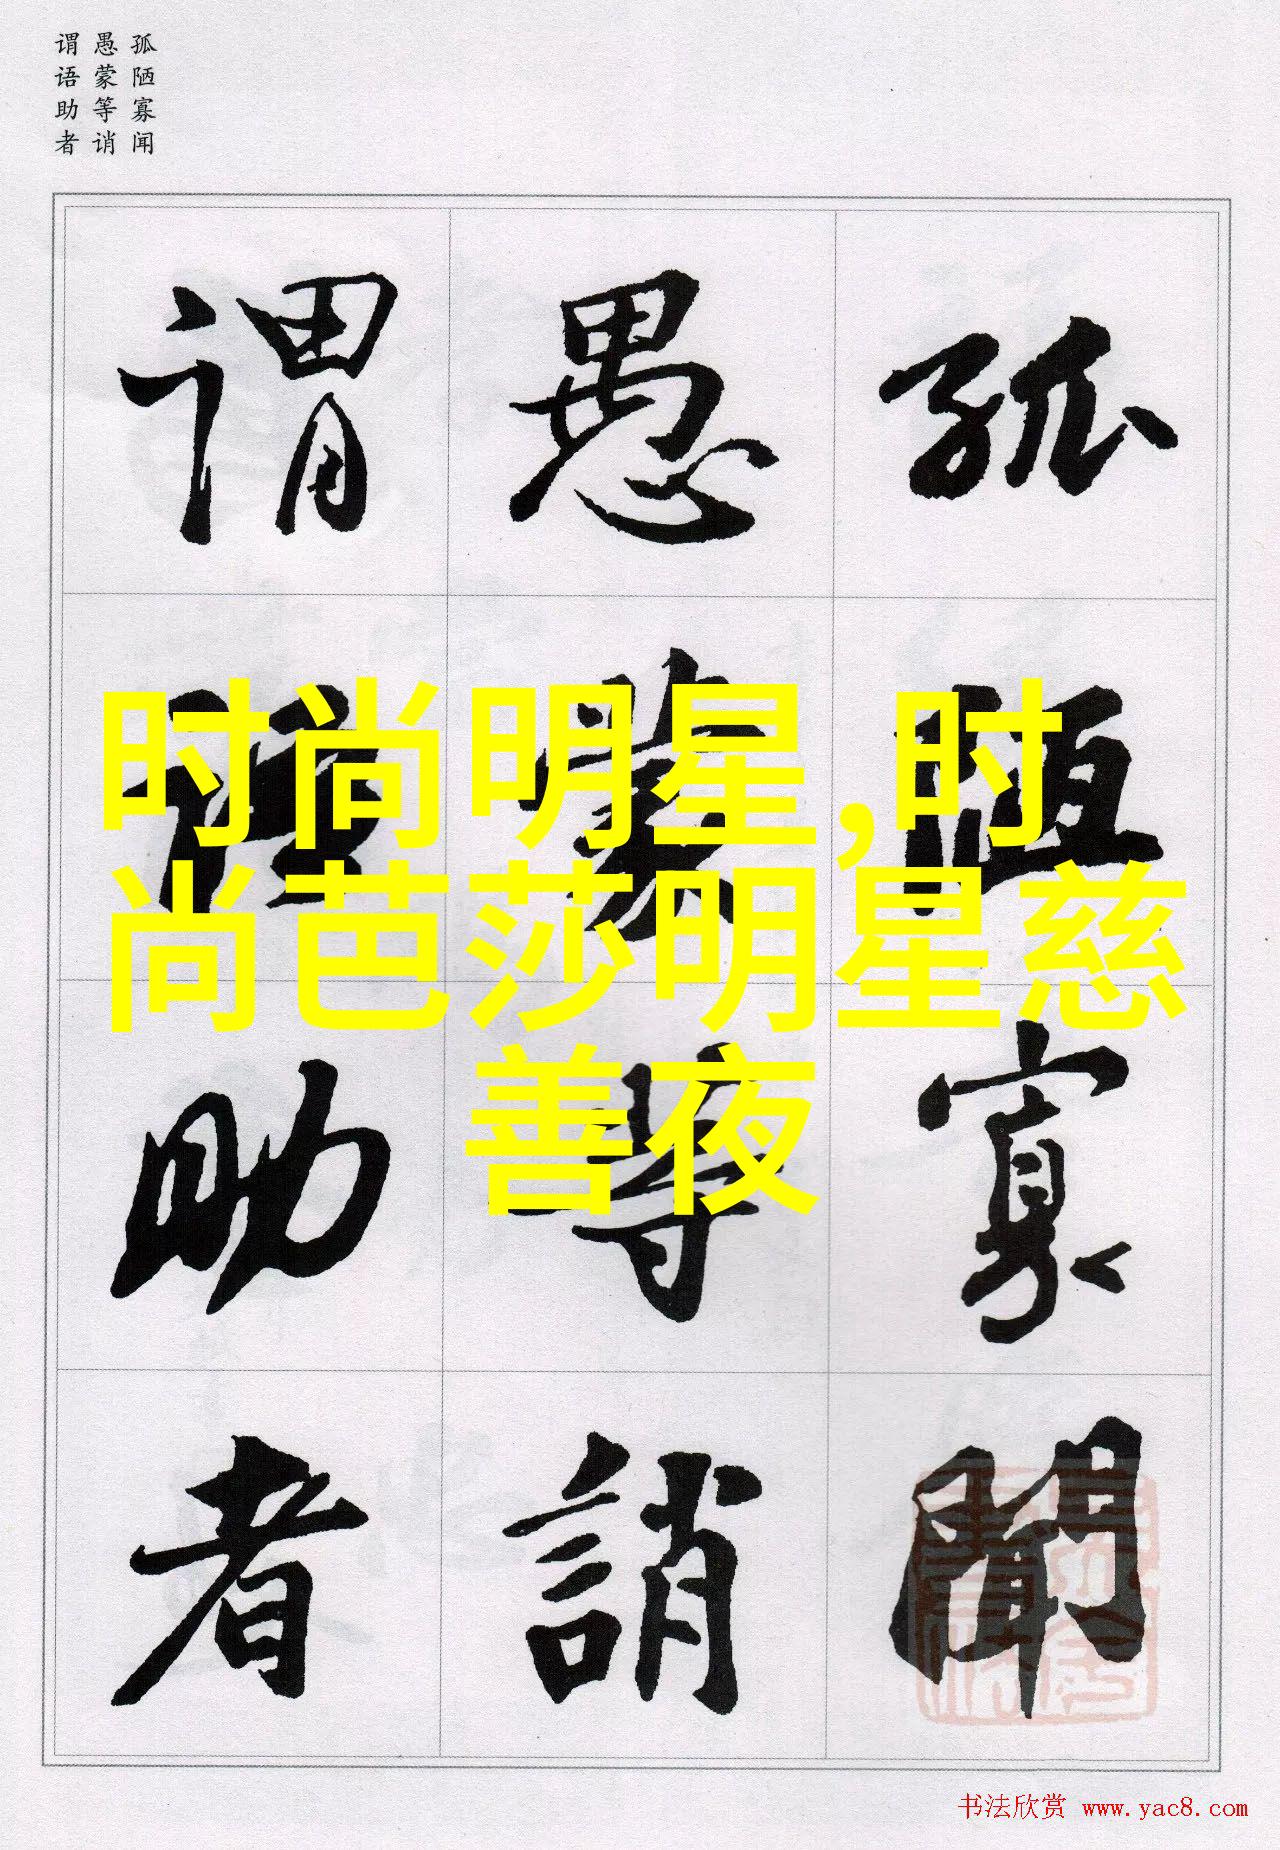 孤陋寡闻
愚蒙等诮
谓语助者
孤陋寡聞
愚蒙等誚
谓语助者
时尚明星,时
尚芭莎明星慈
善夜
书法欣赏 www.yac8.com